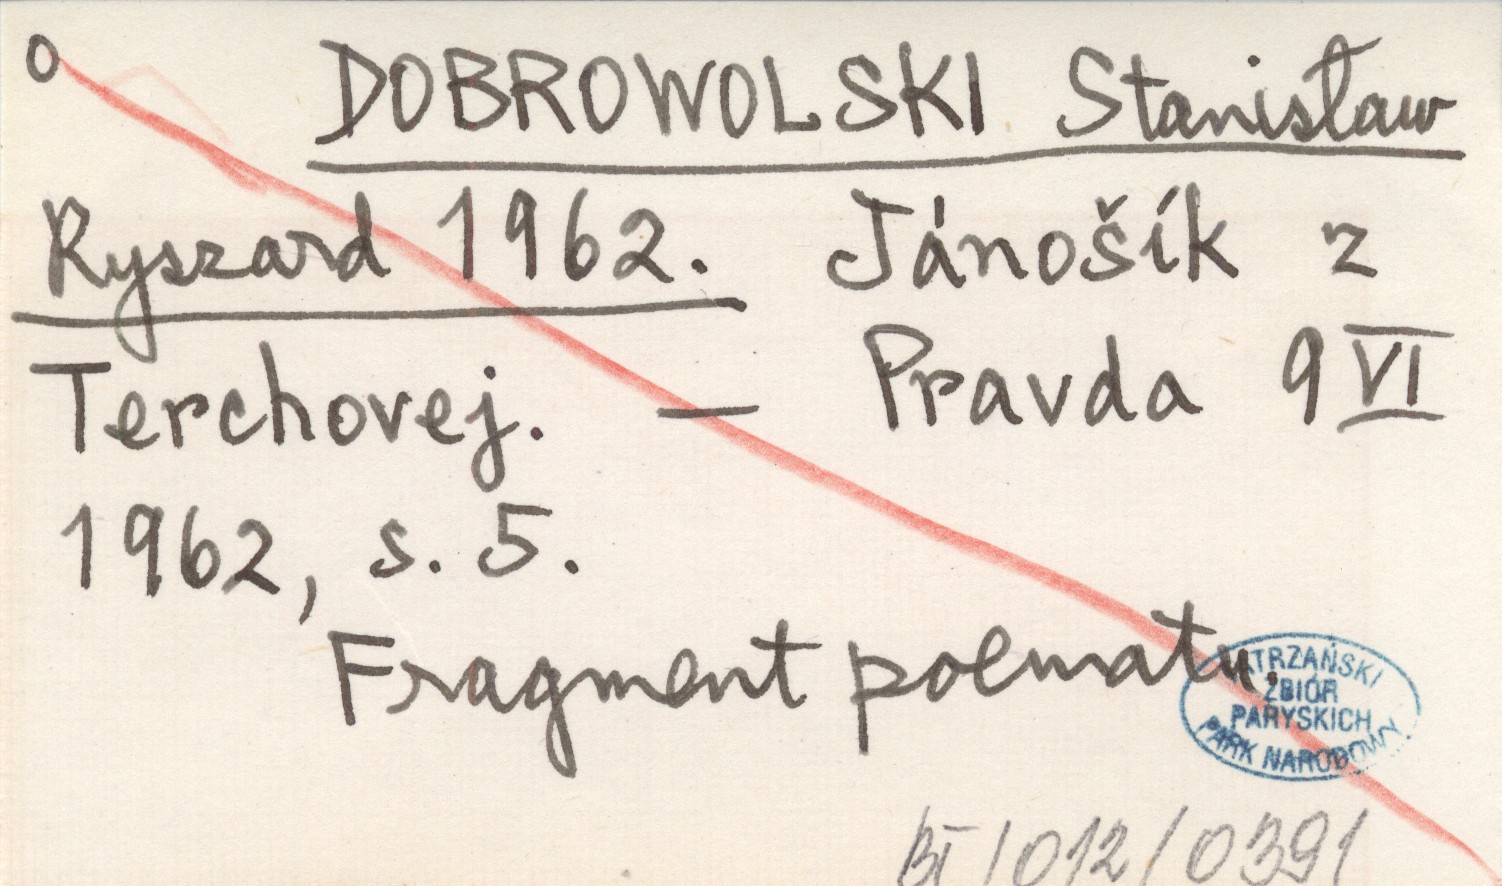 o DOBROWOLSKI Stanisław
Ryszard 1962. Jánošík z
Terchovej. — Pravda 9 VI
1962, s. 5.
Fragment poematu.
TATRZAŃSKI
ZBIÓR
PARYSKICH
PARK NARODOWY
BT/012/0391